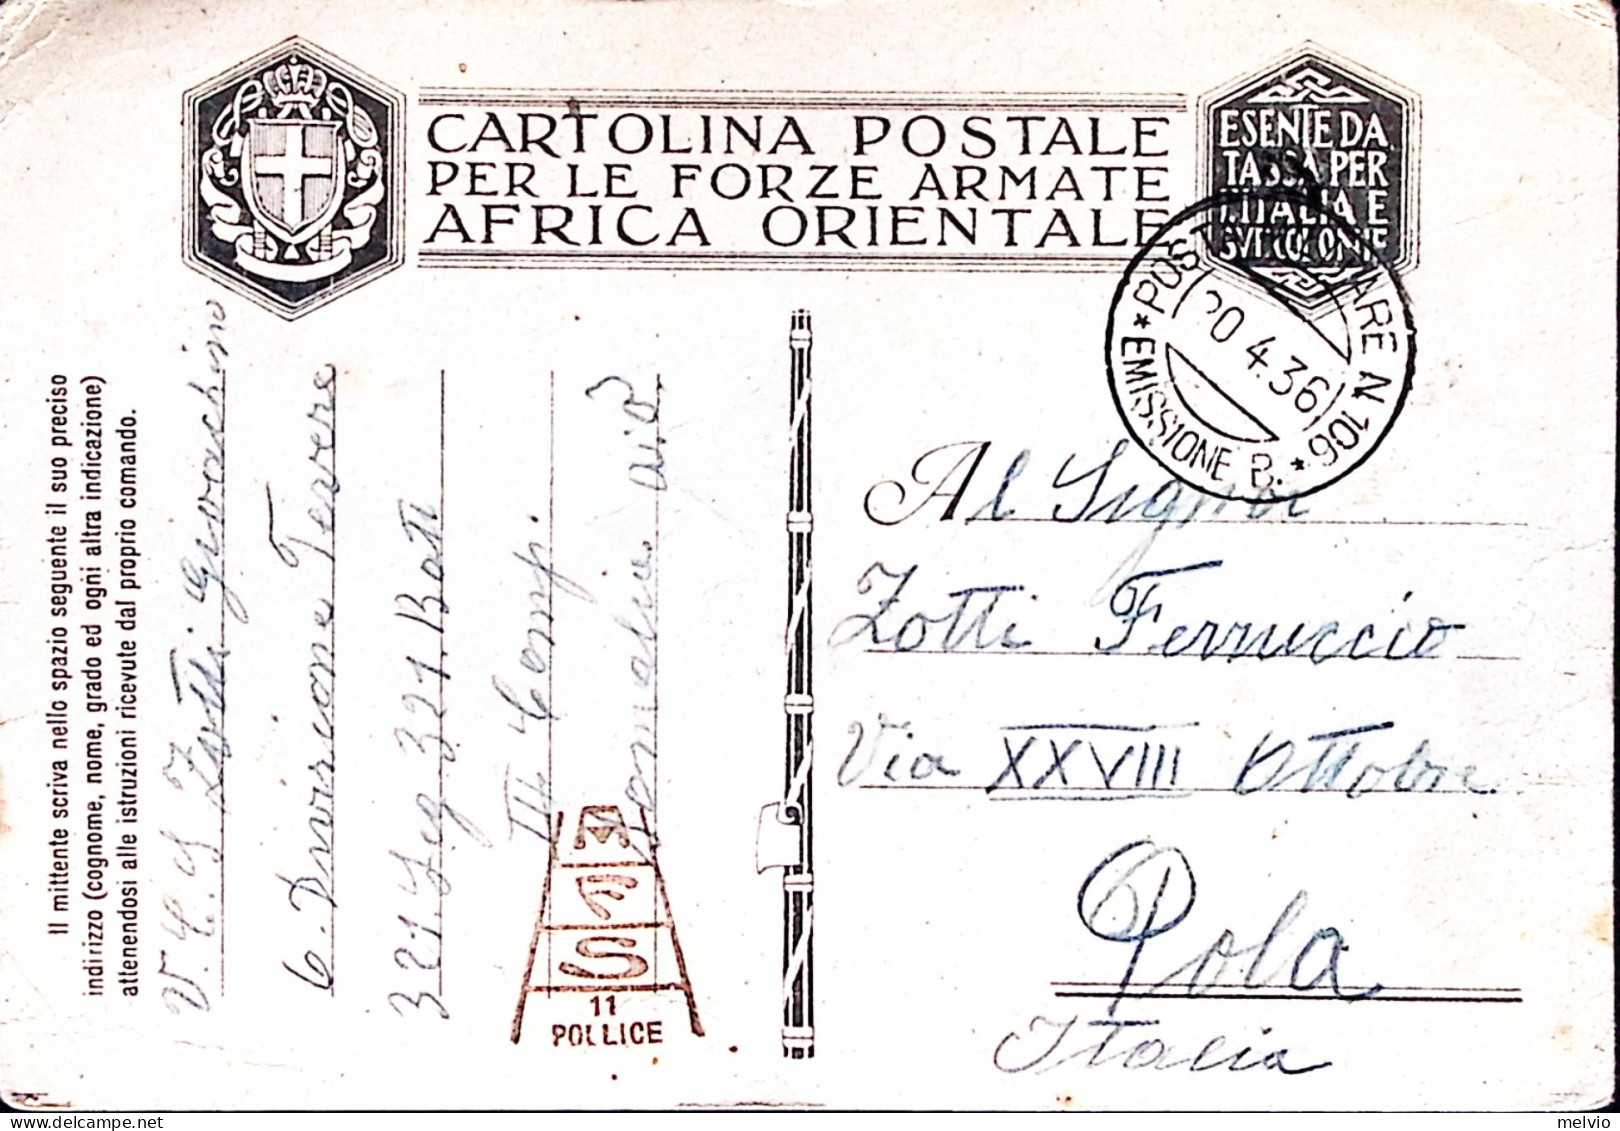 CARTOLINA POSTALE
PER LE FORZE ARMATE
AFRICA ORIENTALE
ESENTE DA
TASSA PER
L'ITALIA E
SVE COLONIE
POSTA MILITARE N. 106
20.4.36
* EMISSIONE B. *
Il mittente scriva nello spazio seguente il suo preciso
indirizzo (cognome, nome, grado ed ogni altra indicazione)
attenendosi alle istruzioni ricevute dal proprio comando.
Zotti Giovachino
6. Divisione Tevere
321. 321. Batt
III Comp.
Somalia
11
POLLICE
Al Signor
Zotti Ferruccio
Via XXVIII Ottobre
Pola
Italia
melvio